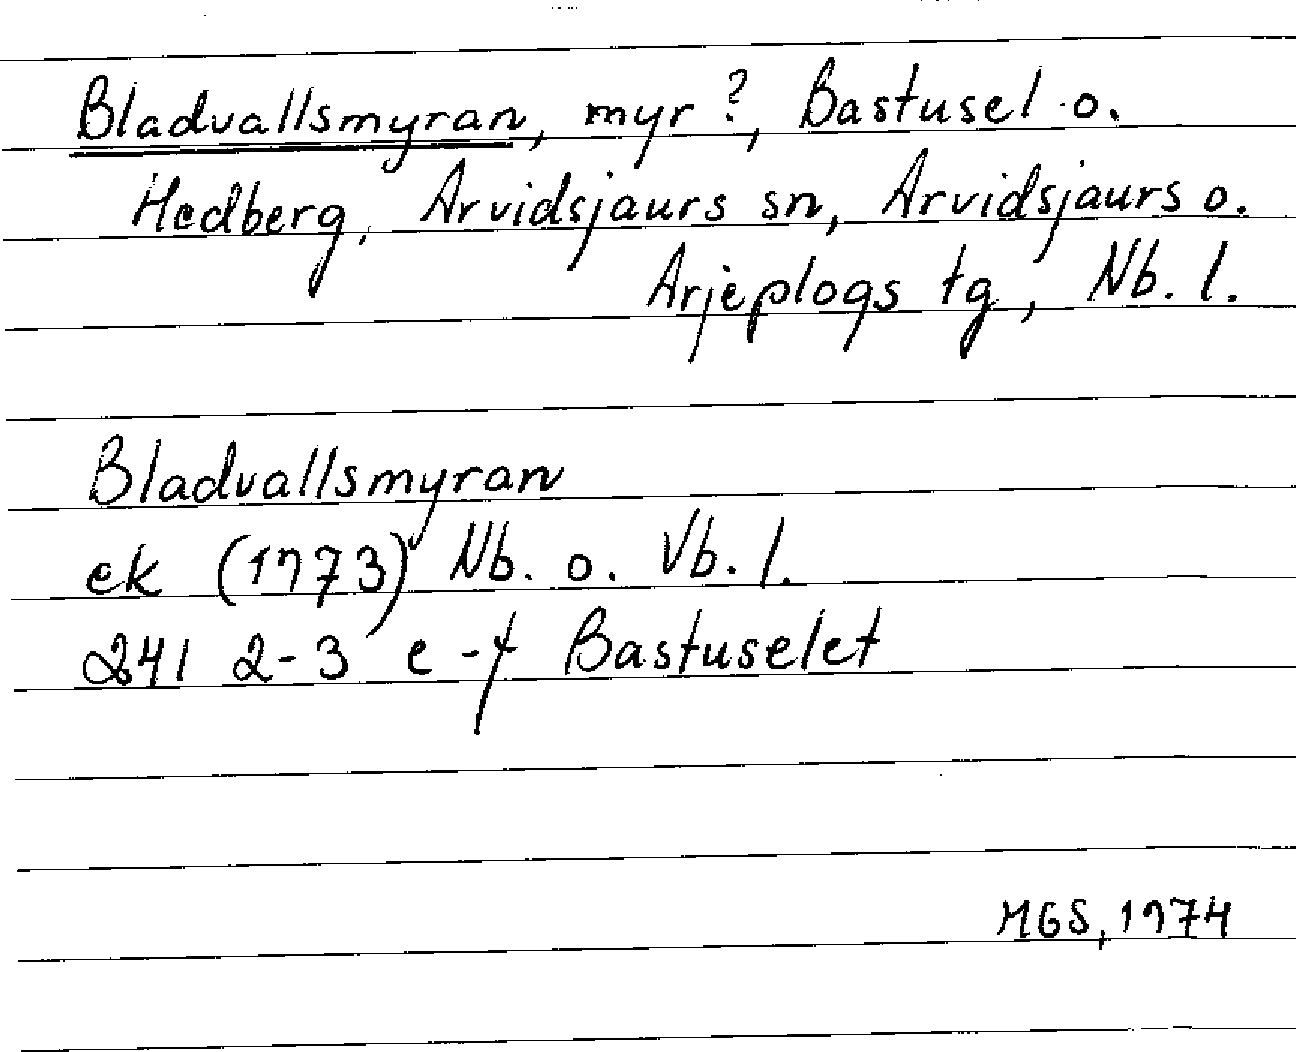 Bladvallsmyran, myr?, Bastusel o.
Hedberg, Arvidsjaurs sn, Arvidsjaurs o.
Arjeplogs tg, Nb. l.
Bladvallsmyran
ek (1973) Nb. o. Vb. l.
241 2-3 e-f Bastuselet
MGS, 1974